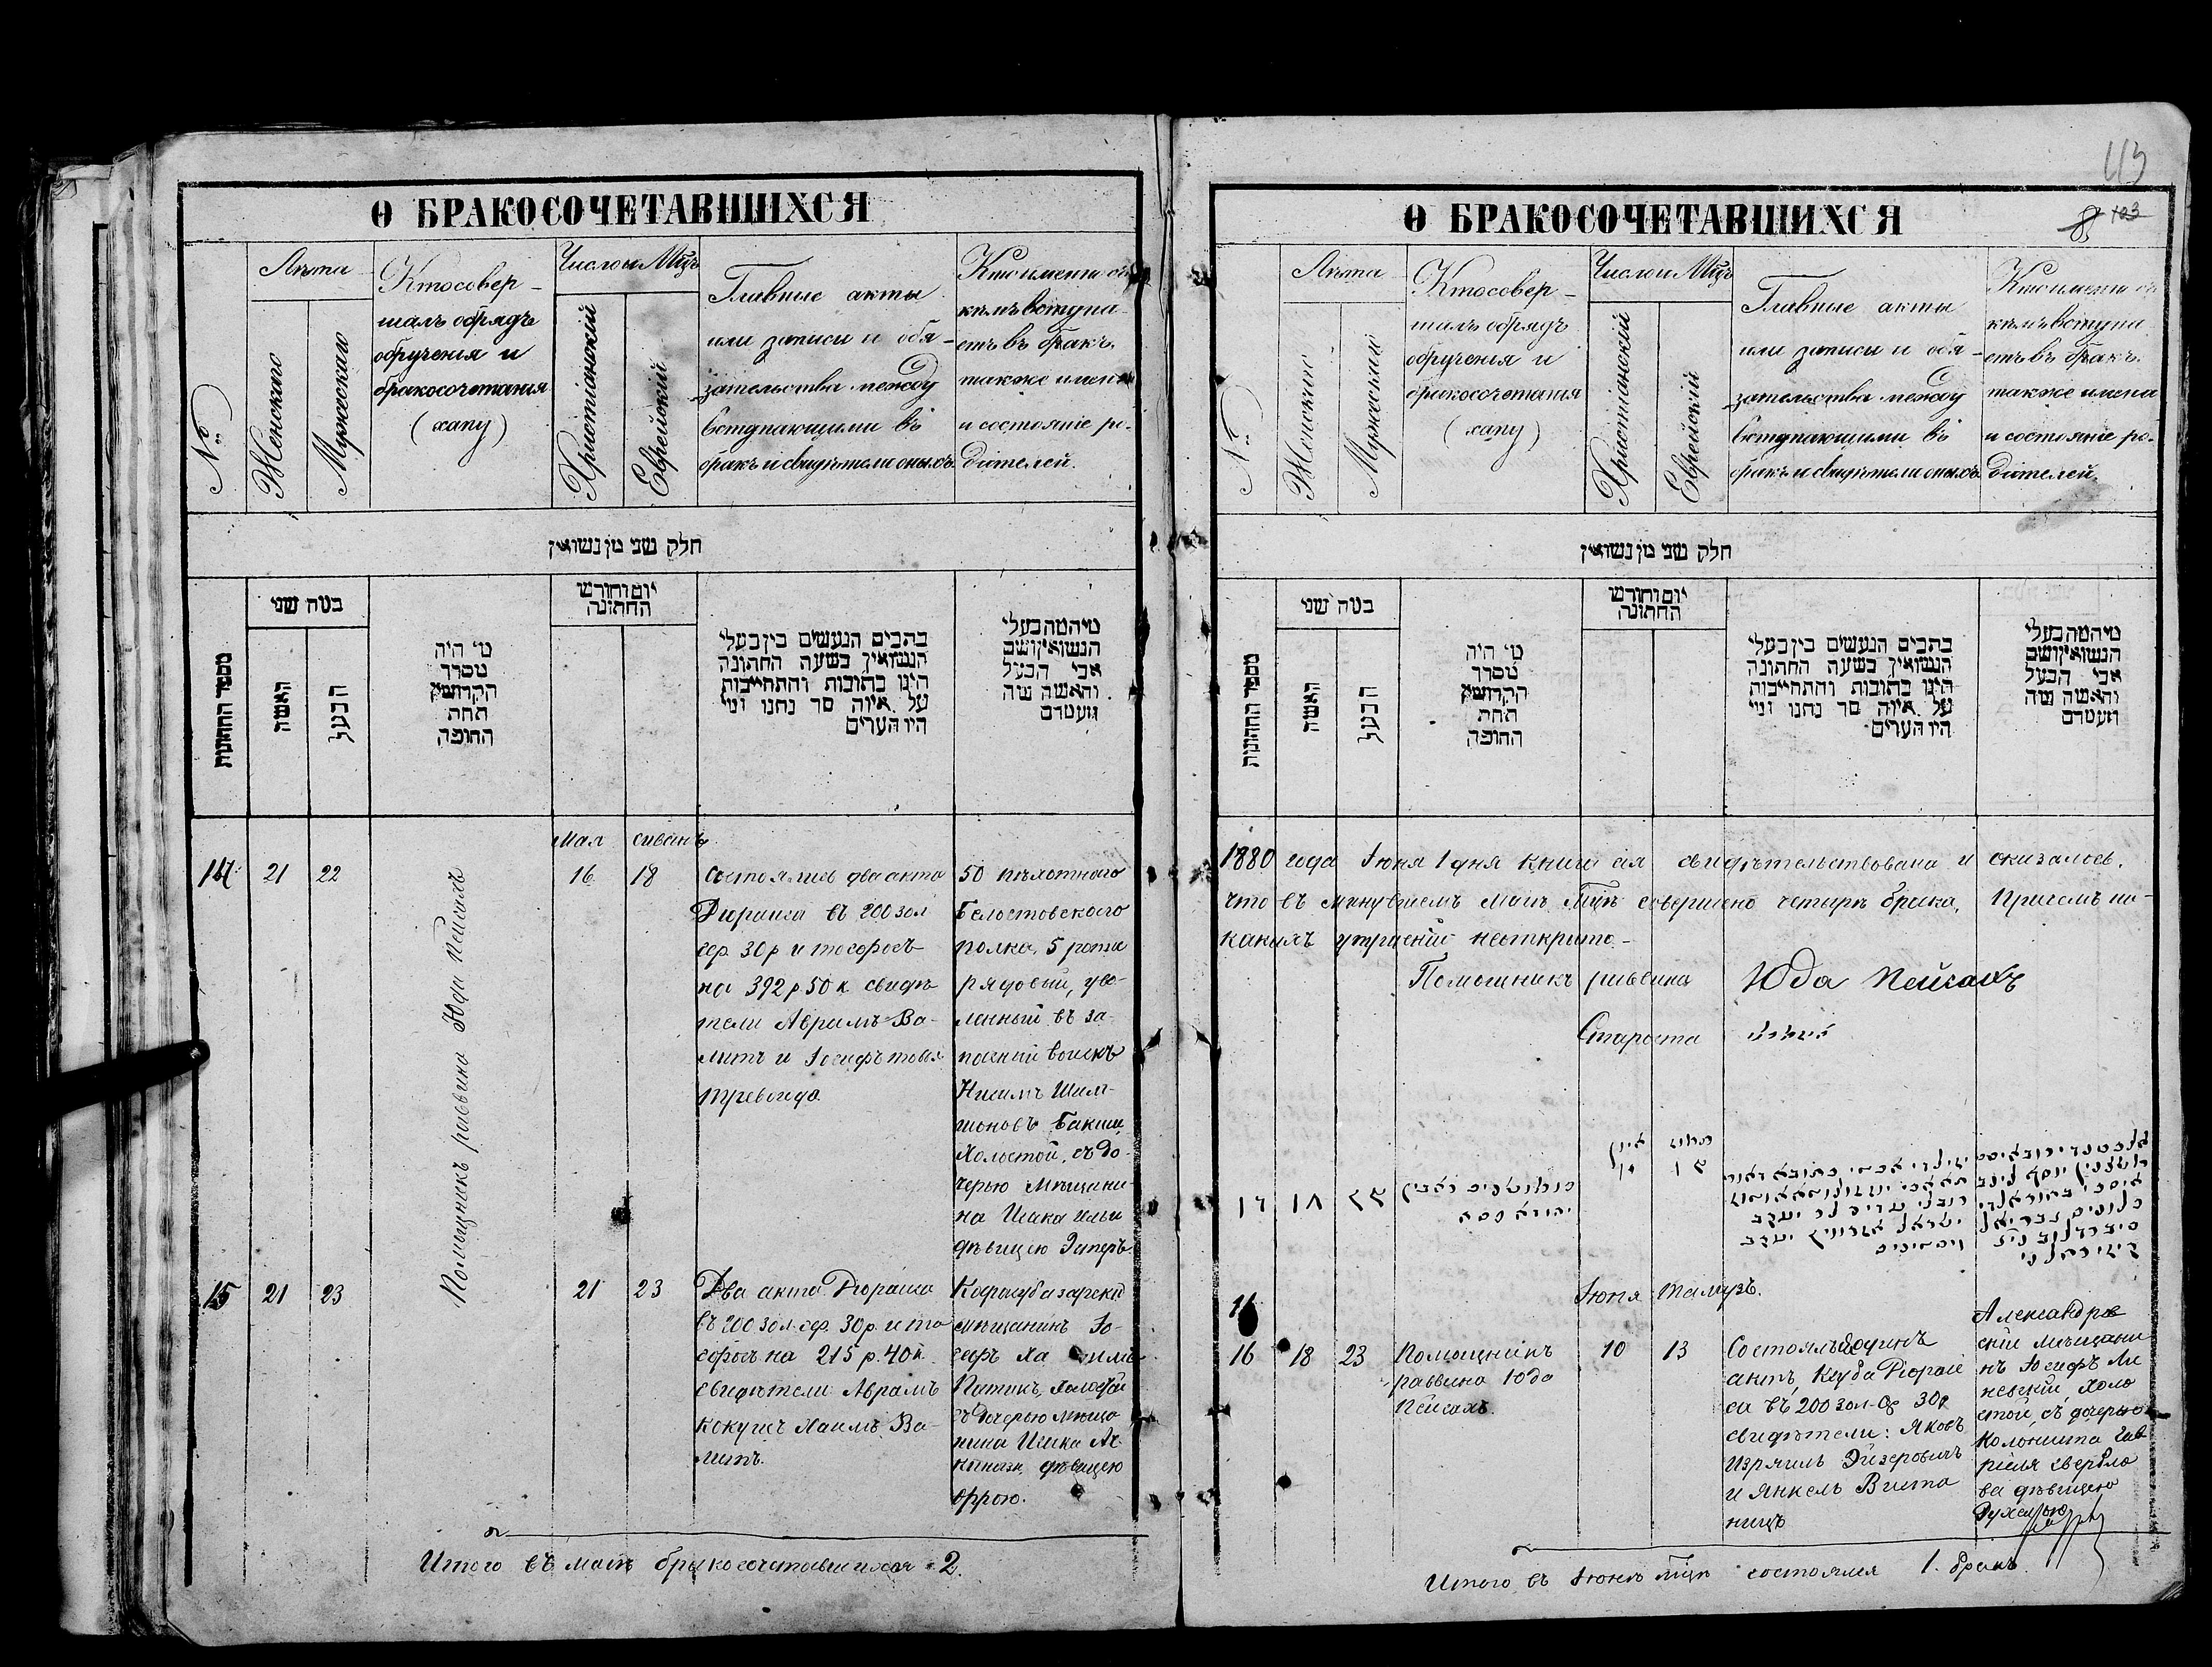 О БРАКОСОЧЕТАВШИХСЯ
№
Лѣта
Женскаго
Мужескаго
Кто совер-
шалъ обрядъ
обрученія и
бракосочетанія
(хапу)
Число и Мцъ
Христіанскій
Еврейскій
Главные акты
или записи и обя-
зательства между
вступающими въ
бракъ и свидѣтели оныхъ
Кто именно съ
кѣмъ вступа-
етъ въ бракъ.
также имена
и состояніе ро-
дителей.
חלק שני מן נשואין
מספר החתונות
כמה שני
האשה
הבעל
מי היה
מסדר
הקדושין
תחת
החופה
יום וחודש
החתונה
כתבים הנעשים בין בעלי
הנשואין בשעה החתונה
הינו כתובות והתחייבות
על איזה סך נתנו ומי
היו העדים
מיהמה בעלי
הנשואין ושם
אבי הבעל
והאשה מה
מעמדם
Мая сиванъ
14 21 22
Помощникъ раввина Юда Пейсахъ
16 18
Состоялись два акта
Дюраиса въ 200 зол
сер. 30 р и тософосъ
на 392 р 50 к свидѣ
тели Аврамъ Ва-
литъ и Іосифъ товья
Тревгода
50 пѣхотнаго
Белостокского
полка, 5 роты
рядовый, уво-
ленный въ за-
пасній войскъ
Нисимъ Шим-
шоновъ Бакши
Холостой, съ до-
черью мѣщани-
на Исака Ильи
дѣвицею Эстеръ
15 21 23
21 23
Два акта Дюраиса
въ 200 зол. сер. 30 р. и то
софосъ на 215 р. 40 к.
Свидѣтели Аврамъ
Кокушъ Хаимъ Ва-
литъ.
Карасубазарскій
мѣщанинъ Іо-
сифъ
холостой
съ дочерью мѣща
нина Исака Ач-
кинази дѣвицею
Фрею.
Итого въ маѣ бракосочетавшихся 2.
113
103
О БРАКОСОЧЕТАВШИХСЯ
№
Лѣта
Женскаго
Мужескаго
Кто совер-
шалъ обрядъ
обрученія и
бракосочетанія
(хапу)
Число и Мцъ
Христіанскій
Еврейскій
Главные акты
или записи и обя-
зательства между
вступающими въ
бракъ и свидѣтели оныхъ
Кто именно съ
кѣмъ вступа
етъ въ бракъ.
также имена
и состояніе ро-
дителей.
חלק שני מן נשואין
מספר החתונות
כמה שני
האשה
הבעל
מי היה
מסדר
הקדושין
תחת
החופה
יום וחודש
החתונה
כתבים הנעשים בין בעלי
הנשואין בשעה החתונה
הינו כתובות והתחייבות
על איזה סך נתנו ומי
היו העדים
מיהמה בעלי
הנשואין ושם
אבי הבעל
והאשה מה
מעמדם
1880 года Іюня 1 дня книга сія свидѣтельствована и оказалось,
что въ минувшемъ маѣ мцѣ совершено четыре брака, Причемъ ни-
какихъ упущеній неоткрыто.-
Помощникъ раввина Юда Пейсахъ
Староста
Іюня тамузъ.
16
16 18 23
Помощникъ
раввина Юда
Пейсахъ.
10 13
Состоялъ одинъ
актъ, Ктуба Дюраи
са въ 200 зол. ср 30 р
свидѣтели: Яковъ
Израиль Эйзеровичъ
и Янкель Вита
ницъ
Александров
скій мѣщани
нъ Іосифъ Ли
невскій, холо
стой, съ дочерью
колониста Гав
ріеля Свердло
ва дѣвицею
Итого въ Іюнѣ мцѣ состоялся 1. бракъ.